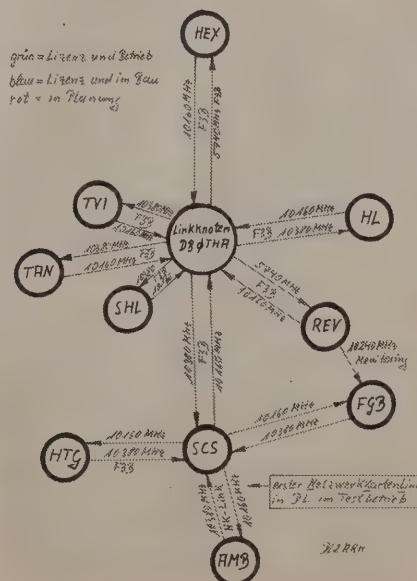 HEX
grün = Lizenz und Betrieb
blau = Lizenz und im Bau
rot = in Planung
10160MHz
F3B
5740MHz
TVI
10380MHz
F3B
10160MHz
Linkknoten
DBØTHA
HL
10160MHz
F3B 10380MHz
TAN
10160MHz
F3B
SHL
5740MHz
F3B
10160MHz
REV
10240MHz
Monitoring
10380MHz
F3B
FGB
10160MHz
10380MHz
HTG
10160MHz
10380MHz
F3B
SCS
erster Netzwerkkartenlink
in DL im Testbetrieb
10380MHz
NK-Link
10160MHz
AMB